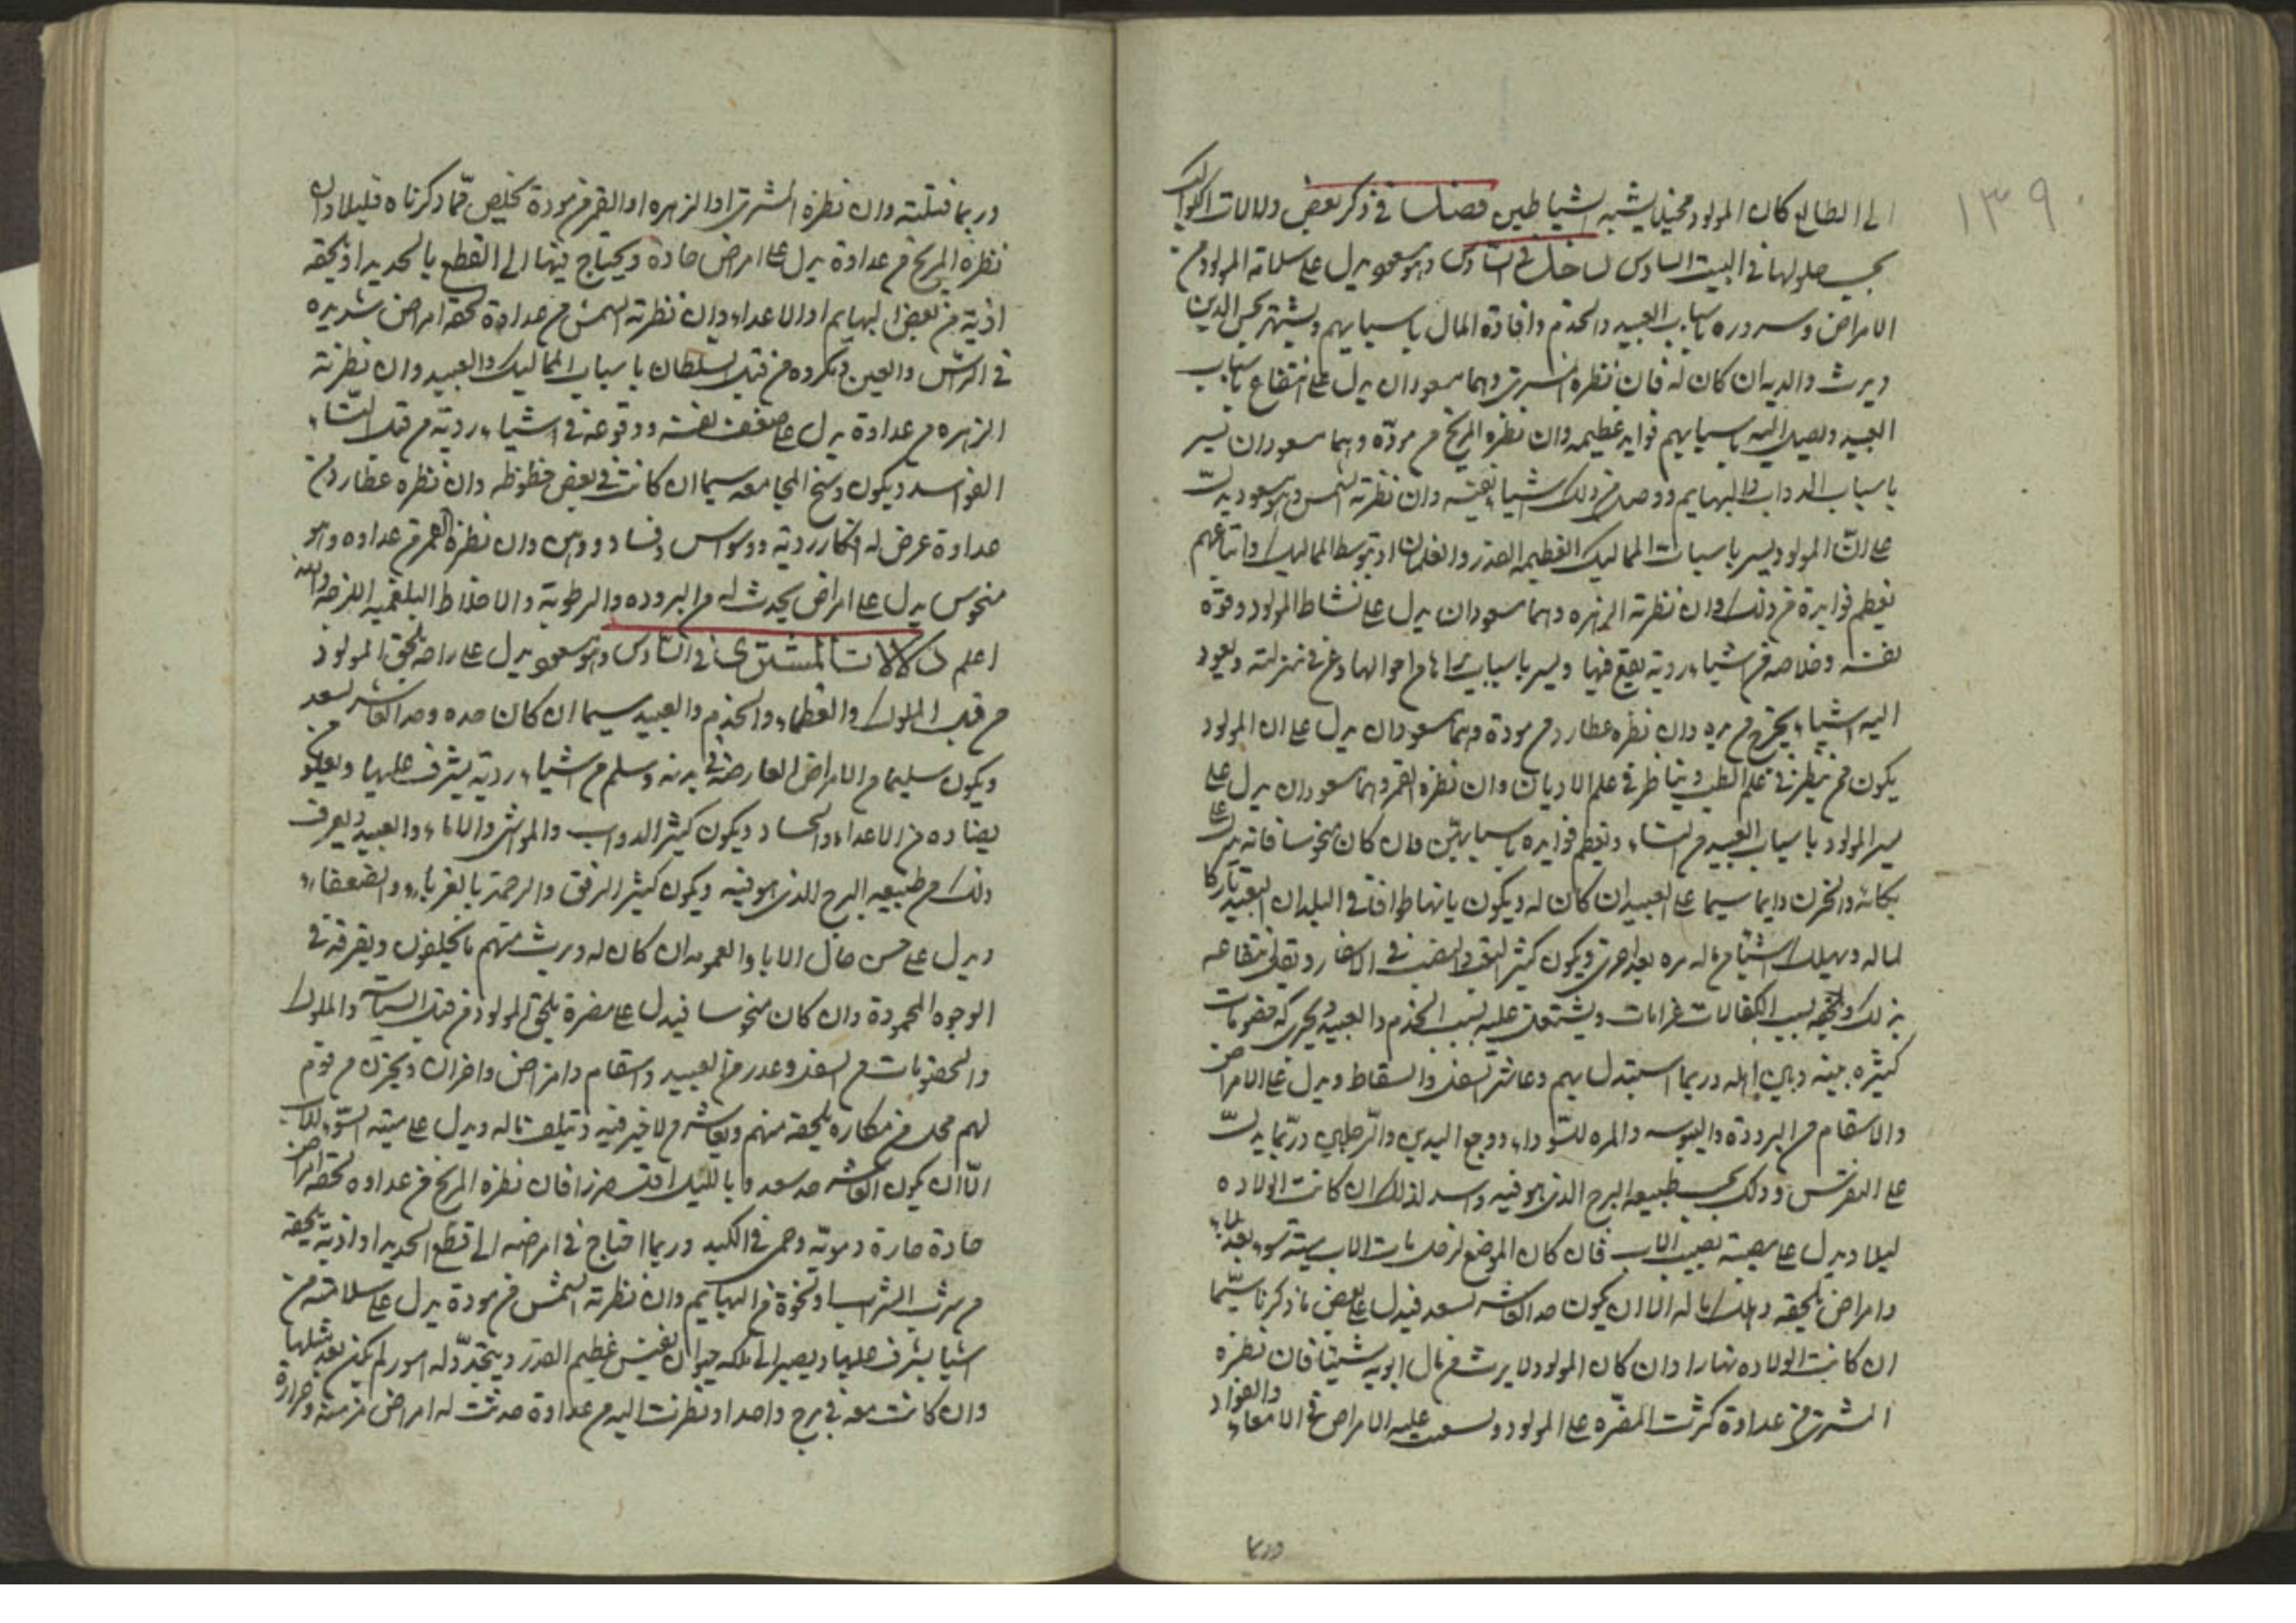 ١٣٩
الى الطالع كان المولود مخيلا يشبه الشياطين فصل في ذكر بعض دلالات الكواكب
بحسب حلولها في البيت السادس زحل في السادس وهو مسعود يدل على سلامة المولود من
الامراض وسروره باسباب العبيد والخدم وافادة المال باسبابهم ويشتهر بحسن الدين
ويرث والديه ان كان له فان نظره المشتري وهما مسعودان يدل على انتفاع باسباب
العبيد ويصل اليه باسبابهم فوايد عظيمه وان نظره المريخ من مودة وهما مسعودان يسر
باسباب الدواب والبهايم ووصل من ذلك اشياء نفيسه وان نظرته الشمس وهو مسعود يدل
على ان المولود يسر باسباب المماليك العظيمه القدر والغلمان او بتوسط المماليك واتباعهم
بعظم فوايده من ذلك وان نظرته الزهره وهما مسعودان يدل على نشاط المولود وقوة
نفسه وخلاصه من اشياء ردية يقع فيها ويسر باسباب من منزلته ويعود
اليه اشياء يخرج من يده وان نظره عطارد من مودة وهما مسعودان يدل على ان المولود
يكون ممن ينظر في علم الطب ويناظر في علم الاديان وان نظره القمر وهما مسعودان يدل على
يسر المولود باسباب العبيد من النساء وتعظم فوايده باسبابهن وان كان منحوسا فانه يدل على
بكائه والحزن دايما سيما على العبيد ان كان له ويكون تايها طوافا في البلدان البعيدة تاركا
لماله ويهلك اشياء من ماله مره بعد اخرى ويكون كثير التعب والنصب في الاسفار ويقل انتفاعه
بذلك ويلحقه بسبب الكفالات غرامات ويشتغل عليه بسبب الخدم والعبيد ويجري له خصومات
كثيره بينه وبين اهله وربما استبدل بهم وعاشر السفل والسقاط ويدل على الامراض
والاسقام من البرودة واليبوسه والمره السوداء ووجع اليدين والرجلين وربما يدل
على النقرس وذلك بحسب طبيعه البرج الذي هو فيه واشد لذلك ان كانت الولاده
ليلا ويدل على مصيبة تصيب الاب فان كان الموضع لزحل مات الاب ميتة سوء بعد بلاء
وامراض يلحقه وهلك ماله الا ان يكون صاحب العاشر سعد فيدل على بعض ما ذكرنا سيما
ان كانت الولاده نهارا وان كان المولود لا يرث من مال ابويه شيئا فان نظره
المشتري من عداوة كثرت المضره على المولود وصعبت عليه الامراض في الامعاء والفؤاد
وربما
وربما قتلته وان نظره المشتري او الزهره او القمر من مودة تخلص مما ذكرناه قليلا وان
نظره المريخ من عداوة يدل على امراض حادة ويحتاج فيها الى القطع بالحديد او يلحقه
اذية من بعض البهايم او الاعداء وان نظرته الشمس من عداوة لحقه امراض شديده
في الراس والعين ومكروه من قبل السلطان باسباب المماليك والعبيد وان نظرته
الزهره من عداوة يدل على ضعف نفسه ووقوعه في اشياء ردية من قبل النساء
الفواسد ويكون وسخ المجامعه سيما ان كانت في بعض حظوظه وان نظره عطارد من
عداوة عرض له افكار ردية ووسواس وفساد ذهن وان نظره القمر من عداوه وهو
منحوس يدل على امراض يحدث له من البروده والرطوبة والاخلاط البلغميه اللزجه والله
اعلم دلالات المشتري في السادس وهو مسعود يدل على راحة يلحق المولود
من قبل الملوك والعظماء والخدم والعبيد سيما ان كان
ويكون سليما من الامراض العارضة في بدنه وسلم من اشياء ردية يشرف عليها ويعلو من
يضاده من الاعداء والحساد ويكون كثير الدواب والمواشي والاماء والعبيد ويعرف
ذلك من طبيعه البرج الذي هو فيه ويكون كثير الرفق والرحمة بالغرباء والضعفاء
ويدل على حسن حال الاباء والعمومه ان كان له ويرث منهم ما يخلفون ويفرقه في
الوجوه المحمودة وان كان منحوسا فيدل على مضرة يلحق المولود من قبل السلاطين والملوك
والخصومات من السفل وغدر من العبيد واسقام وامراض واحزان ويحزن من قوم
لهم محل من مكاره يلحقه منهم ويعاشر من لا خير فيه ويتلف ماله ويدل على ميتة السوء للاب
الا ان يكون العاشر حد سعد واما بالليل اقل ضررا فان نظره المريخ من عداوه لحقه امراض
حادة حارة دموية وحمى في الكبد وربما احتاج في امراضه الى قطع الحديد او اذية يلحقه
من شرب الشراب او نحوه من البهايم وان نظرته الشمس من مودة يدل على سلامته من
اشيا يشرف عليها ويصير الى ملكه حيوان نفيس عظيم القدر ويتجدد له امور لم يكن يعد مثلها
وان كانت معه في برج واحد او نظرت اليه من عداوة حدثت له امراض مزمنة وحرارة